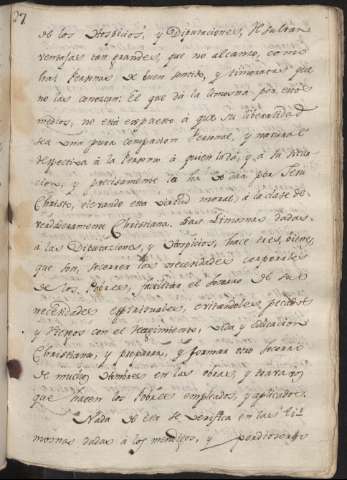 37
de los Hospicios, y Diputaciones, Resultan
ventajas tan grandes, que no alcanzo, como
hai Personas de buen sentido, y timoratas que
no las conozcan. El que dà la limosna por estos
medios, no està expuesto à que su liberalidad
sea una pura compasion Personal, y natural
respectiva à la Persona à quien la dà, y à su situa
cion, y precisamente la ha de dar por Jesu
Christo, elevando esta virtud moral, à la clase de
verdaderamente Christiana. Las Limosnas dadas
a las Diputaciones, y Hospicios, hace tres bienes
que son, socorrer las necesidades corporales
de los Pobres, facilitar el socorro de sus
necesidades espirituales, evitandoles pecados
y riesgos con el recogimiento, vida y educacion
Christiana, y preparar, y formar otro socorro
de muchos Hombres en las obras, y travajos
que hacen los Pobres empleados, y aplicados.
Nada de esto se verifica en las Li
mosnas dadas à los mendigos, y pordioseros